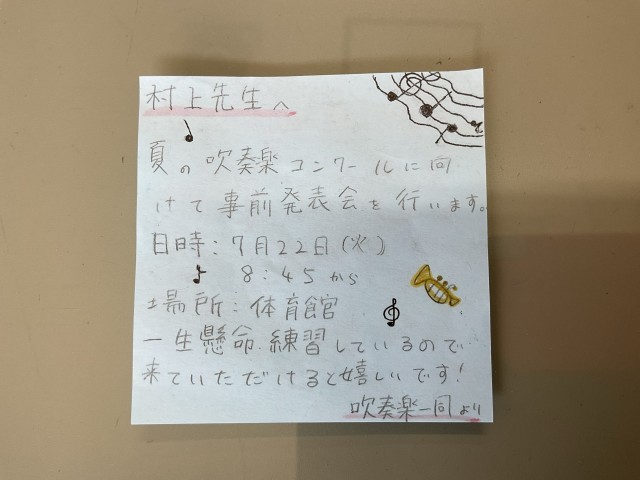 村上先生へ
夏の吹奏楽コンクールに向
けて事前発表会を行います。
日時:7月22日(火)
8:45から
場所:体育館
一生懸命練習しているので
来ていただけると嬉しいです!
吹奏楽一同より